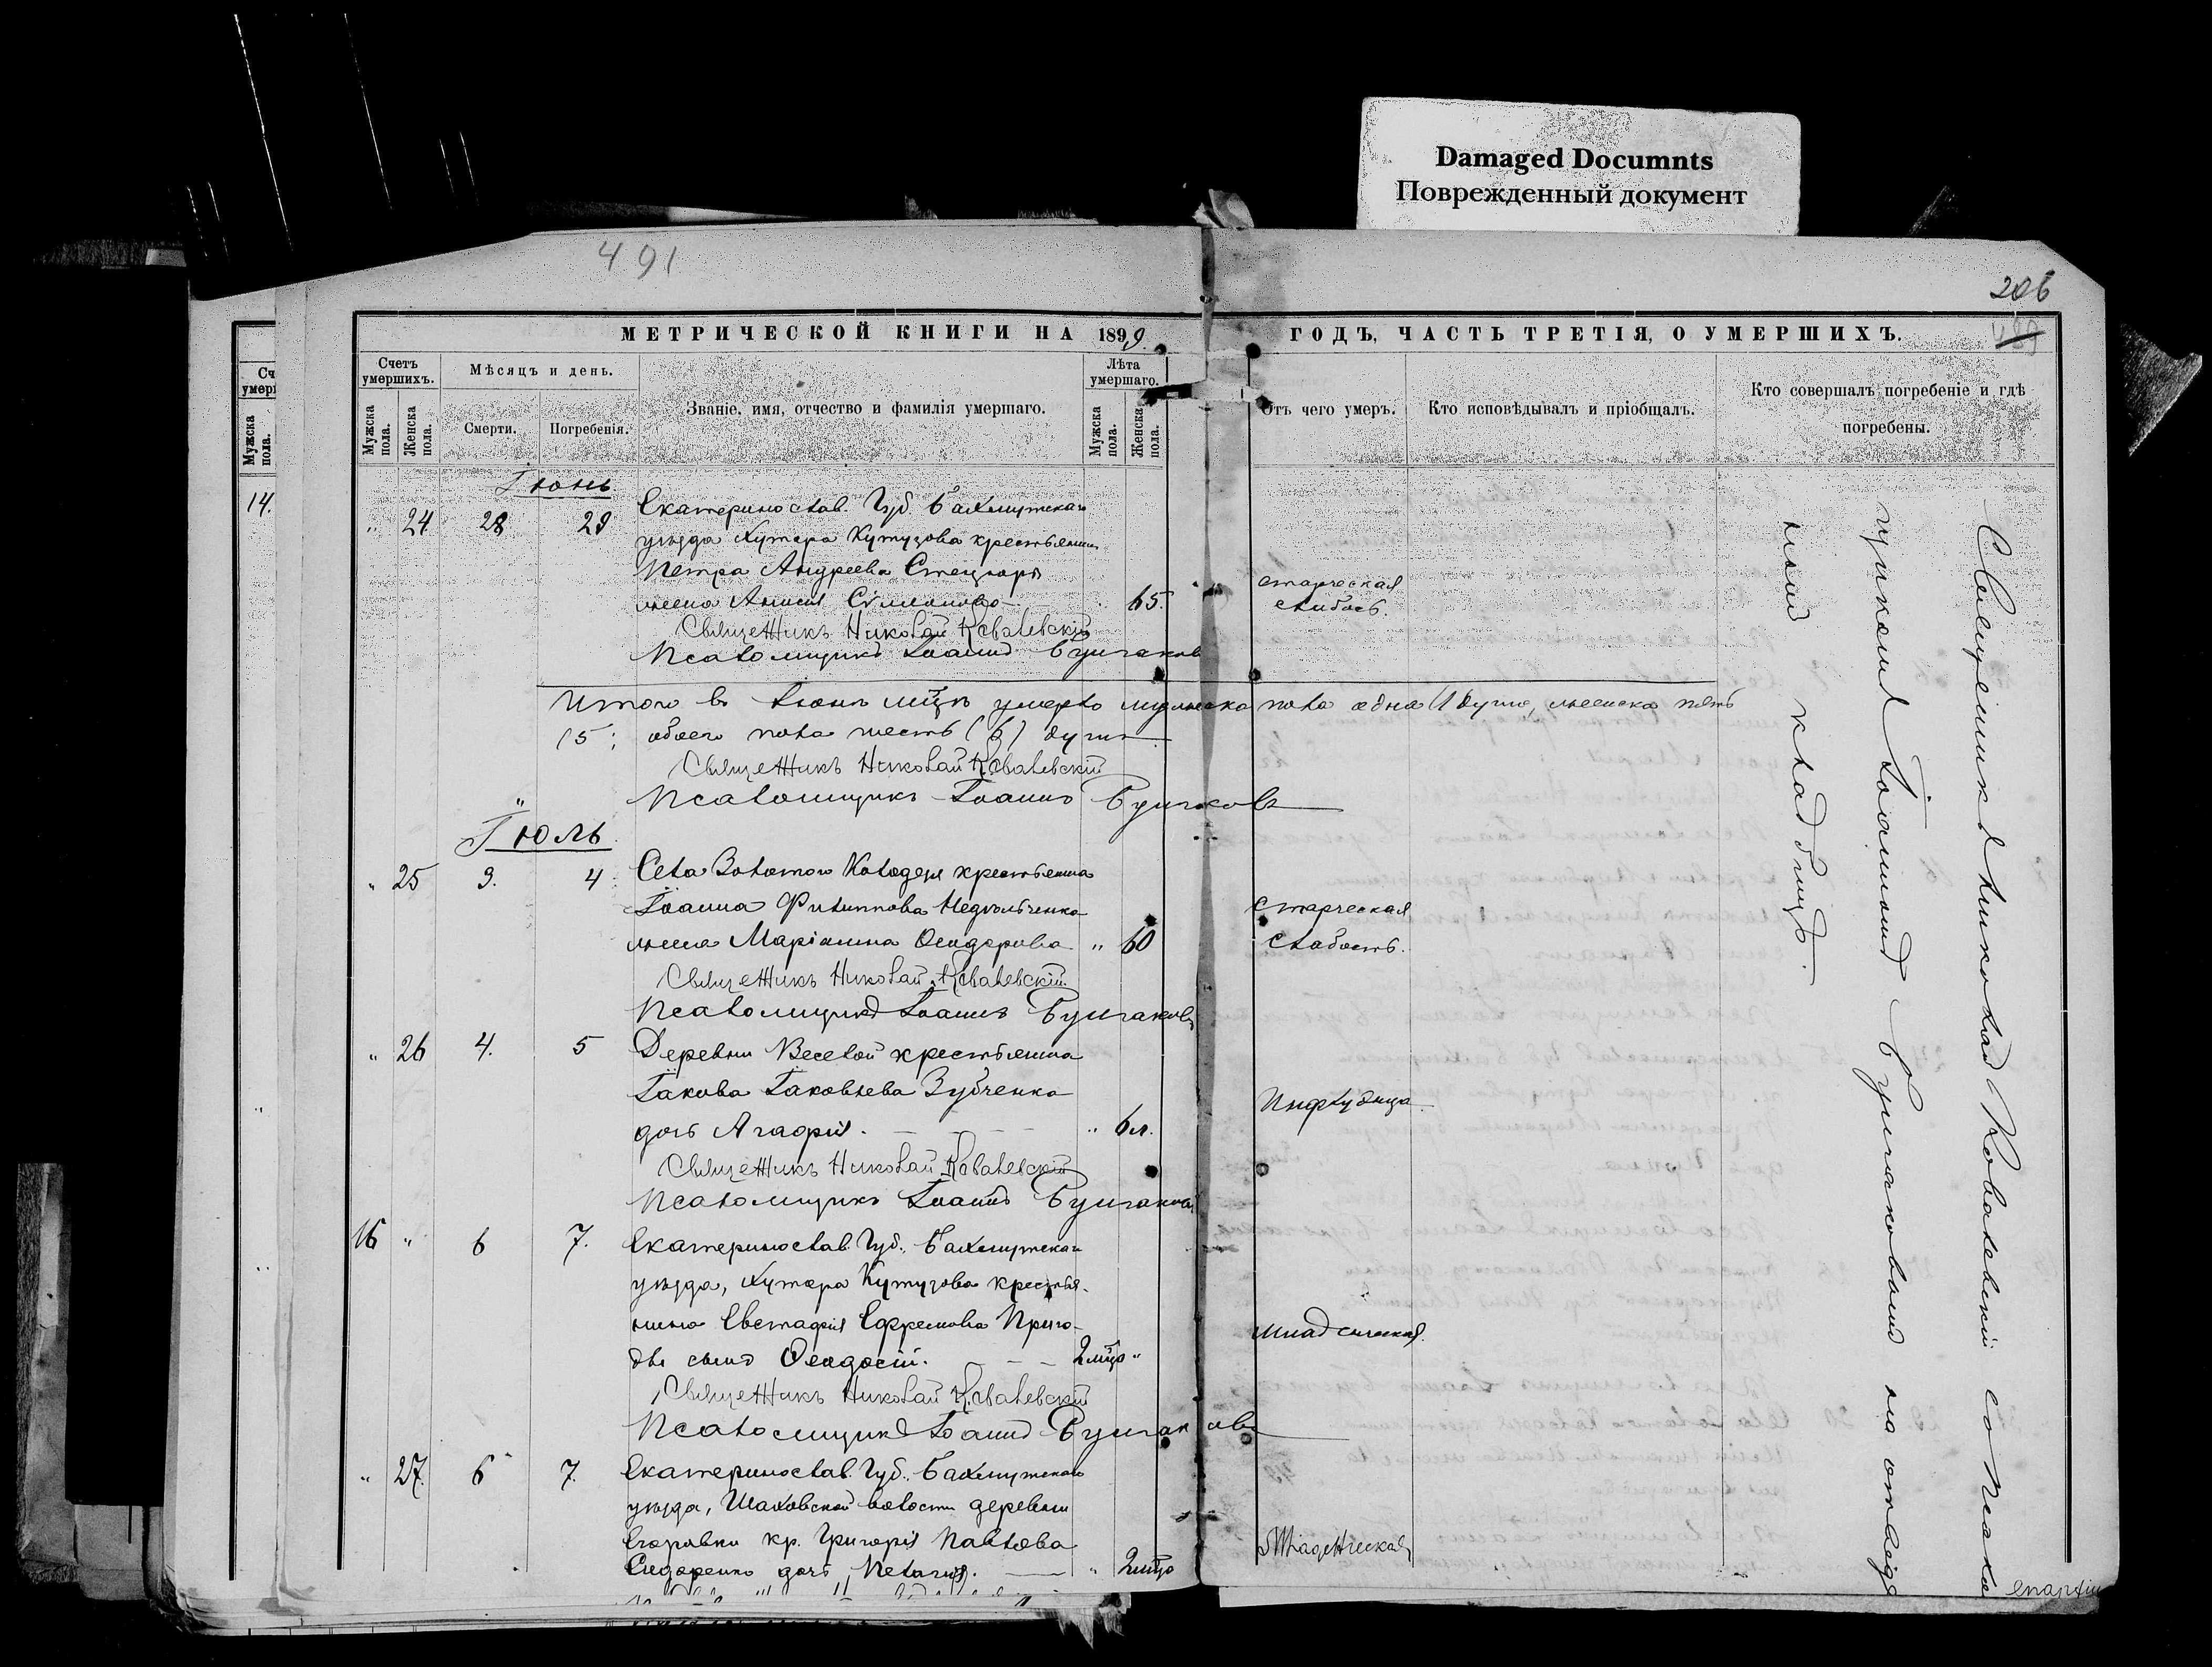 Damaged Documnts
Поврежденный документ
491
206
МЕТРИЧЕСКОЙ КНИГИ НА 1899.
ГОДЪ, ЧАСТЬ ТРЕТІЯ, О УМЕРШИХЪ.
Счетъ умершихъ.
Мѣсяцъ и день.
Званіе, имя, отчество и фамилія умершаго.
Лѣта умершаго.
Отъ чего умеръ.
Кто исповѣдывалъ и пріобщалъ.
Кто совершалъ погребеніе и гдѣ погребены.
Мужска пола.
Женска пола.
Смерти.
Погребенія.
Мужска пола.
Женска пола.
Мужска пола.
14.
Іюнь
" 24 28 29 Екатеринослав. Губ. Бахмутскаго
уѣзда Хутора Кутузова крестьянина
Петра Андреева
жена Анисія Симеонова 65. старческая слабость.
Священникъ Николай Ковалевскій
Псаломщикъ Іоаннъ Булгаковъ
Итого въ Іюнѣ мцѣ умерло мужеска пола одна (1 душа, женска пять
(5; обоего пола шесть (6) душъ
Священникъ Николай Ковалевскій
Псаломщикъ Іоаннъ Булгаковъ
Іюль
" 25 3. 4 Села Золотого Колодезя крестьянина
Іоанна Филиппова
жена Маріанна Ѳеодорова " 60 Старческая слабость.
Священникъ Николай Ковалевскій
Псаломщикъ Іоаннъ Булгаковъ
" 26 4. 5 Деревни Веселой крестьянина
Іакова Іаковлева Зубченка
дочь Агафія. " 6 л.
Священникъ Николай Ковалевскій
Псаломщикъ Іоаннъ Булгаковъ
16 " 6 7. Екатеринослав. Губ., Бахмутскаго
уѣзда, Хутора Кутузова крестья-
нина Евстафія Ефремова Приго-
ды сынъ Ѳеодосій. 2 мца " младенческая.
Священникъ Николай Ковалевскій
Псаломщикъ Іоаннъ Булгаковъ
" 27. 6 7. Екатеринослав. Губ., Бахмутскаго
уѣзда, Шаховской волости деревни
Егоровки кр. Григорія Павлова
Сидоренко дочь Пелагія. " 2 мца Младенческая
Священникъ Николай Ковалевскій съ Псалом-
щикомъ Іоанномъ Булгаковымъ на
кладбищѣ.